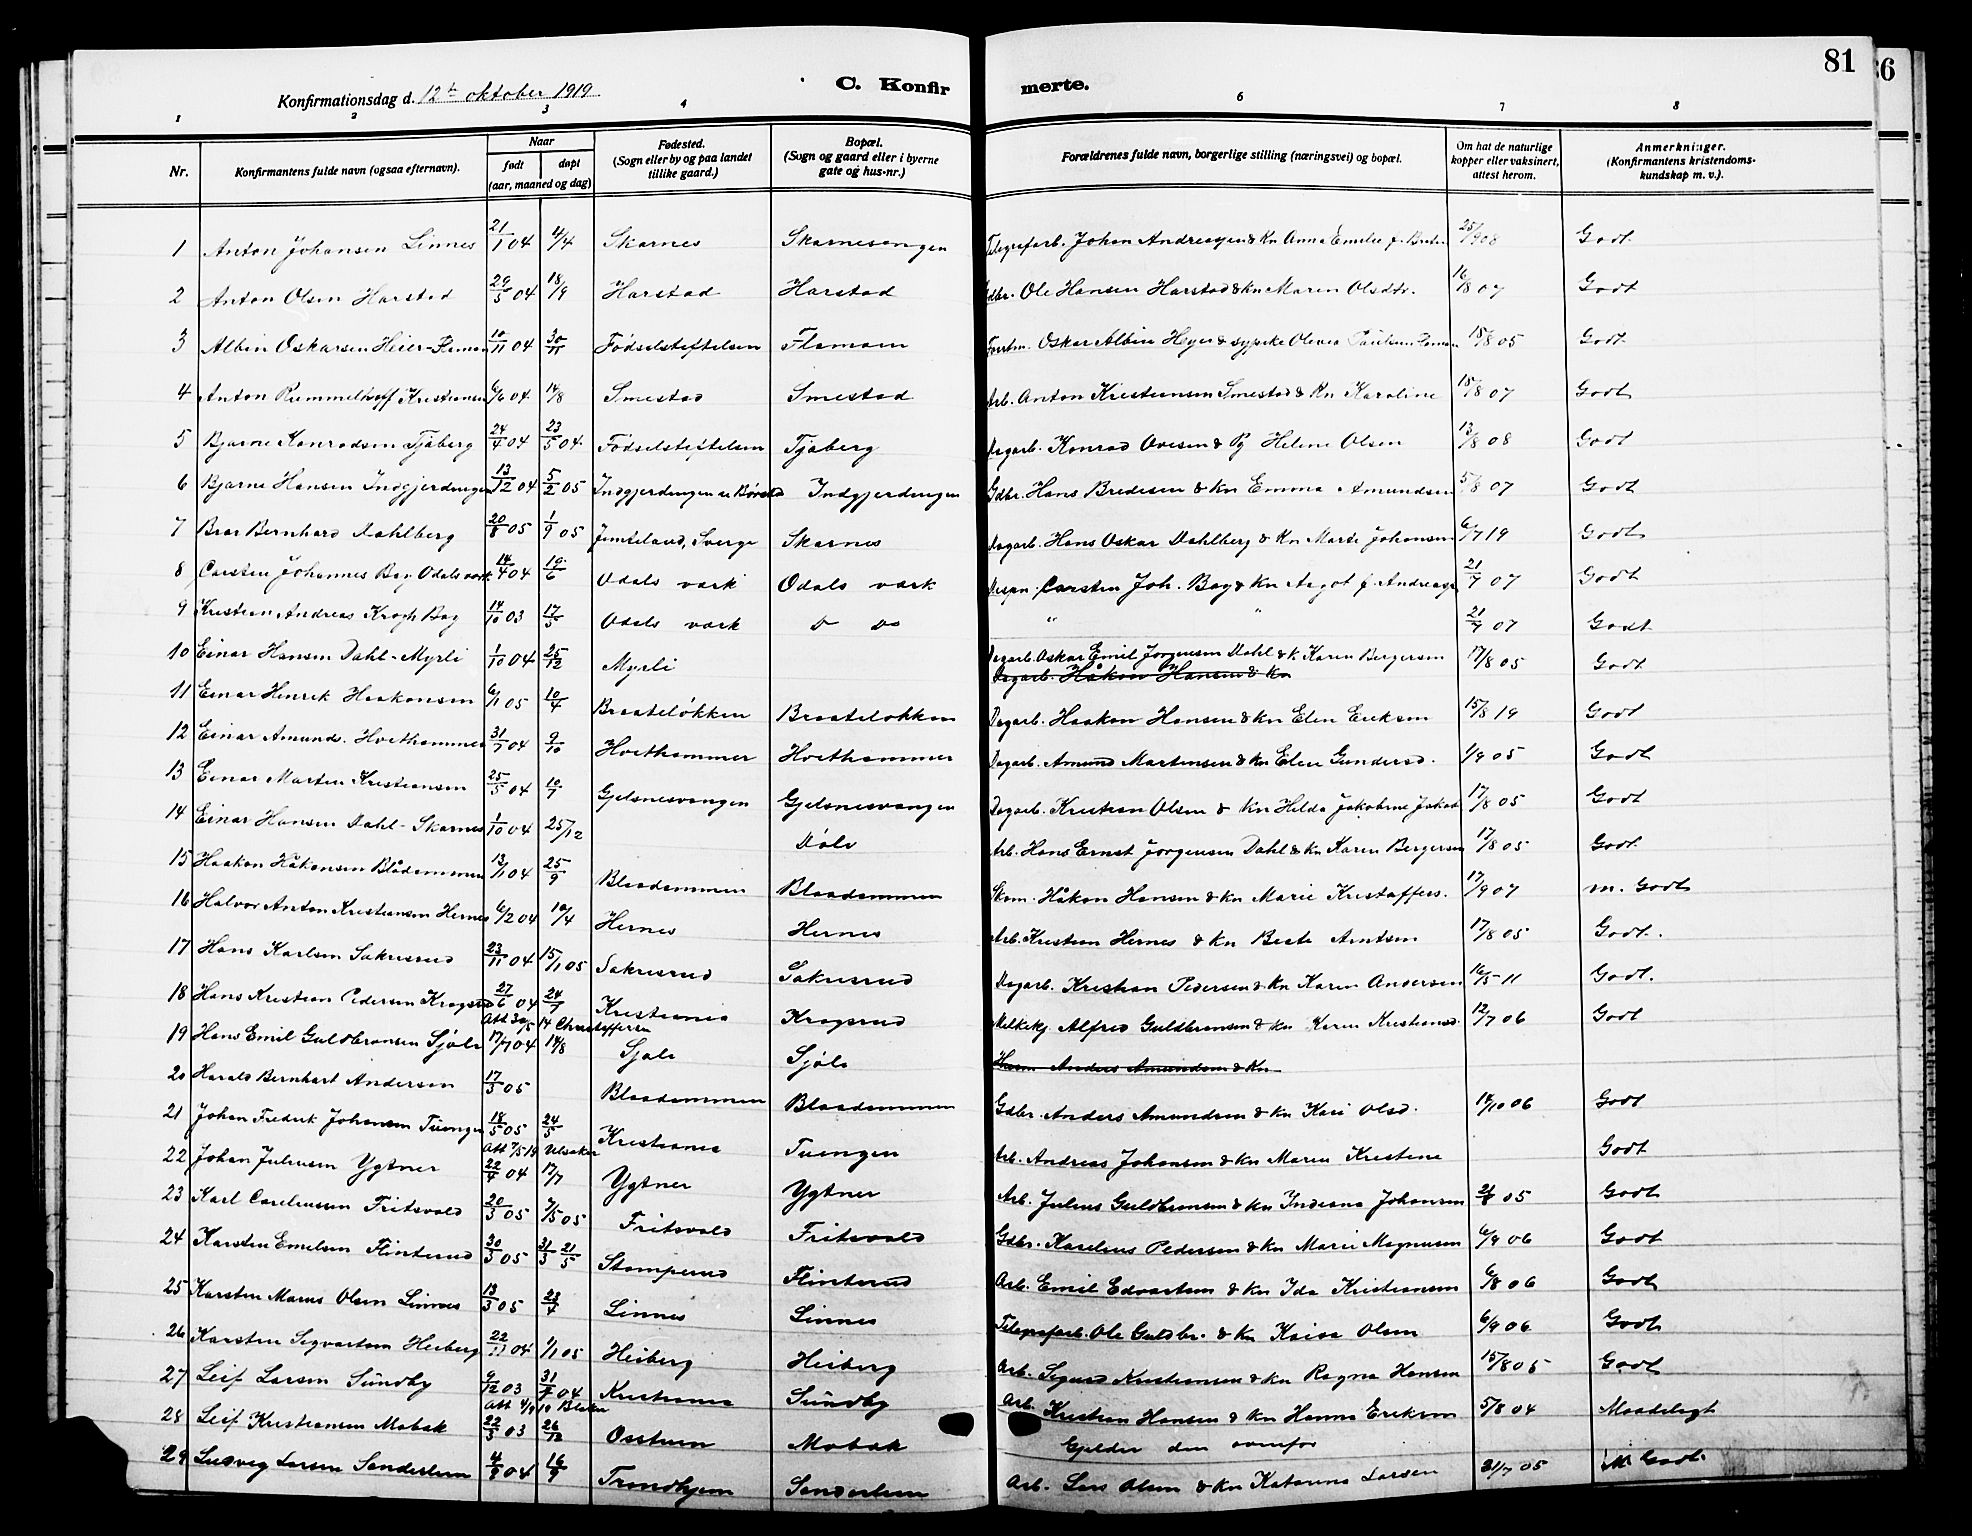 81
Konfirmationsdag d. 12te oktober 1919
C. Konfirmerte.
1 2 3 4 5 6 7 8
Nr. Konfirmantens fulde navn (ogsaa efternavn). Naar født døpt (aar, maaned og dag) Fødested. (Sogn eller by og paa landet tillike gaard.) Bopæl. (Sogn og gaard eller i byerne gate og hus-nr.) Forældrenes fulde navn, borgerlige stilling (næringsvei) og bopæl. Om hat de naturlige kopper eller vaksinert, attest herom. Anmerkninger. (Konfirmantens kristendoms-kundskap m. v.).
1 Anton Johansen Linnes 21/1 04 4/4 Skarnes Skarnesengen Telegrafarb. Johan Andreassen & Kn Anna Emilie 25/9 08 Godt
2 Anton Olsen Harstad 29/5 04 18/9 Harstad Harstad Gdbr. Ole Hansen Harstad & Kn Maren Olsdtr. 16/8 07 Godt
3 Albin Oskarsen Heier- 10/11 04 30/11 Fødselsstiftelsen Flamoen Oskar Albin Heyer & sypike Olivia 15/8 05 Godt
4 Anton Rummelhoff Kristiansen 6/6 04 14/8 Smestad Smestad Arb. Anton Kristiansen Smestad & Kn Karoline 15/8 07 Godt
5 Bjarne Konradsen Tjaberg 24/4 04 23/5 04 Fødselsstiftelsen Tjaberg Dagarb. Konrad Ovesen & Pg Helene Olsen 13/8 08 Godt
6 Bjarne Hansen Indgjerdingen 13/12 04 5/2 05 Indgjerdingen Indgjerdingen Gdbr. Hans Bredesen & Kn Emma Amundsen 5/8 07 Godt
7 Bror Bernhard Dahlberg 20/8 05 1/9 05 Jemteland, Sverge Skarnes Dagarb. Hans Oskar Dahlberg & Kn Marte Johansen 6/7 19 Godt
8 Carsten Johannes Bay Odals værk 14/4 04 19/6 Odals værk Odals værk Carsten Joh. Bay & Kn Aagot f. Andreas 21/7 07 Godt
9 Kristian Andreas Krogh Bay 14/10 03 17/5 Odals værk Do Do " " 21/7 07 Godt
10 Einar Hansen Dahl-Myrli 1/10 04 25/12 Myrli Dagarb. Oskar Emil Jørgensen Dahl & K. Karen Bergersen 17/8 05 Godt
Dagarb. Håkon Hansen & Kn
11 Einar Henrik Haakonsen 6/1 05 10/4 Braateløkken Braateløkken Dagarb. Haakon Hansen & Kn Elen Eriksen 15/8 19 Godt
12 Einar Amunds. Hvithammer 31/7 04 9/10 Hvithammer Hvithammer Dagarb. Amund Martinsen & Kn Eline Gundersd. 1/9 05 Godt
13 Einar Martin Kristiansen 25/5 04 10/7 Gjelsnesvangen Gjelsnesvangen Dagarb. Kristian Olsen & Kn Hilda Jakobine Jakob 17/8 05 Godt
14 Einar Hansen Dahl-Skarnes 1/10 04 25/12 Døle Arb. Hans Ernst Jørgensen Dahl & Kn Karen Bergersen 17/8 05 Godt
15 Haakon Håkonsen Blådammen 13/11 04 25/9 Blaadammen Blaadammen Skom. Håkon Hansen & Kn Marie Kristoffers. 17/9 07 m. Godt
16 Halvor Anton Kristiansen Hernes 6/2 04 10/4 Hernes Hernes Arb. Kristian Hernes & Kn Beate Arntsen 17/8 05 Godt.
17 Hans Karlsen Sakrisrud 23/11 04 15/1 05 Sakrisrud Sakrisrud Dagarb. Kristian Pedersen & Kn Karen Andersen 16/5 11 Godt.
18 Hans Kristian Pedersen Krogsrud 27/6 04 24/7 Kristiania Krogsrud Melkekj. Alfred Guldbransen & Kn Karen Kristiansd. 12/7 06 Godt
Att 30/5 14 Christoffersen
19 Hans Emil Guldbransen Sjøli 17/7 04 14/8 Sjøli Sjøli Husm. Anders Amundsen & Kn
20 Harald Bernhart Andersen 17/3 05 Blaadammen Blaadammen Gdbr. Anders Amundsen & Kn Kari Olsd. 14/10 06 Godt
21 Johan Fredrik Johansen Tuengen 18/5 05 24/5 Kristiania Tuengen Arb. Andreas Johansen & Kn Maren Kristine Godt
Att 7/5 19 Ulsaker
22 Johan Juliussen Ygtner 22/4 04 17/7 Ygtner Ygtner Arb. Julius Guldbransen & Kn Indiana Johansen 21/8 05 Godt
23 Karl Careliussen Fritsvold 20/3 05 7/5 05 Fritsvold Fritsvold Gdbr. Karelius Pedersen & Kn Marie Magnussen 6/9 06 Godt
24 Karsten Emilsen Flinterud 30/3 05 31/3 21/5 Stomperud Flinterud Arb. Emil Edvartsen & Kn Ida Kristiansen 6/8 06 Godt
25 Karsten Marius Olsen Linnes 13/3 05 23/4 Linnes Linnes Telegrafarb. Ole Guldbr. & Kn Kaisa Olsen 6/9 06 Godt
26 Karsten Segvartsen Heiberg 22/11 04 1/1 05 Heiberg Heiberg Arb. Sigurd Kristiansen & Kn Ragna Hansen 15/8 05 Godt
27 Leif Larsen Sundby 9/12 03 31/7 04 Kristiania Sundby Arb. Kristian Hansen & Kn Hanna Eriksen 5/8 04 Maadelegt
28 Leif Kristiansen Mobak 22/3 03 26/12 Mobak Gjelder den ovenfor
29 Ludvig Larsen 4/8 04 16/9 Trondhjem Arb. Lars Olsen & Kn Katarina Larsen 31/7 05 M Godt.